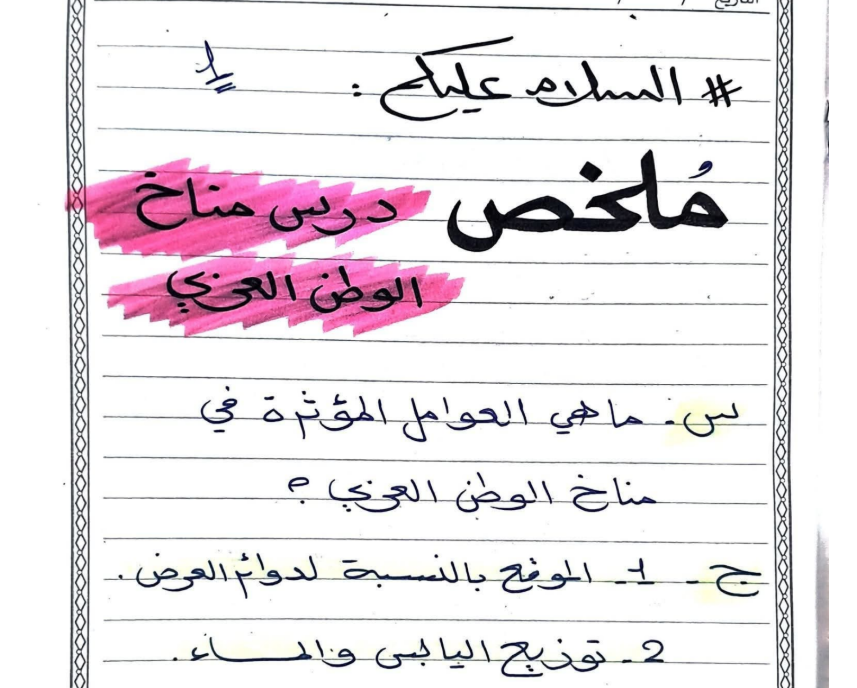 التاريخ / /
# السلام عليكم : 1
مُلخص درس مناخ
الوطن العربي
س. ما هي العوامل المؤثرة في
مناخ الوطن العربي ؟
ج - 1- الموقع بالنسبة لدوائر العرض.
2- توزيع اليابس والماء.